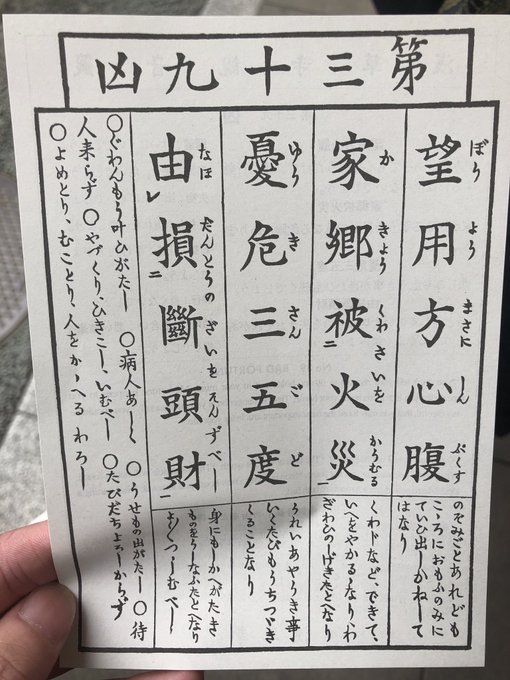 第三十九凶
望用方心腹
ぼう よう まさに しん ぷくす
のぞみごとあれども
こゝろにおもふのみに
ていひ出しかねして
はなり
家郷被二火災一
か きょう くわさいを かうむる
くわじなど、できて、
いへをやかるゝなり、わ
ざわひのしげきたとへなり
憂危三五度
ゆう き さん ご ど
うれいあやうき事
いくたびもうちつゞき
くることなり
由レ損二斷頭財一
なほ だんとうの ざいをそんずべし
身にもしかへがたき
ものをうしなふたとへなり
よくつゝしむべし
〇ぐわんもう叶ひがたし 〇病人あしく 〇うせもの出がたし 〇待
人来らず 〇やづくり、ひきこし、いむべし 〇たびだちよろしからず
〇よめとり、むことり、人をかゝへる わろし